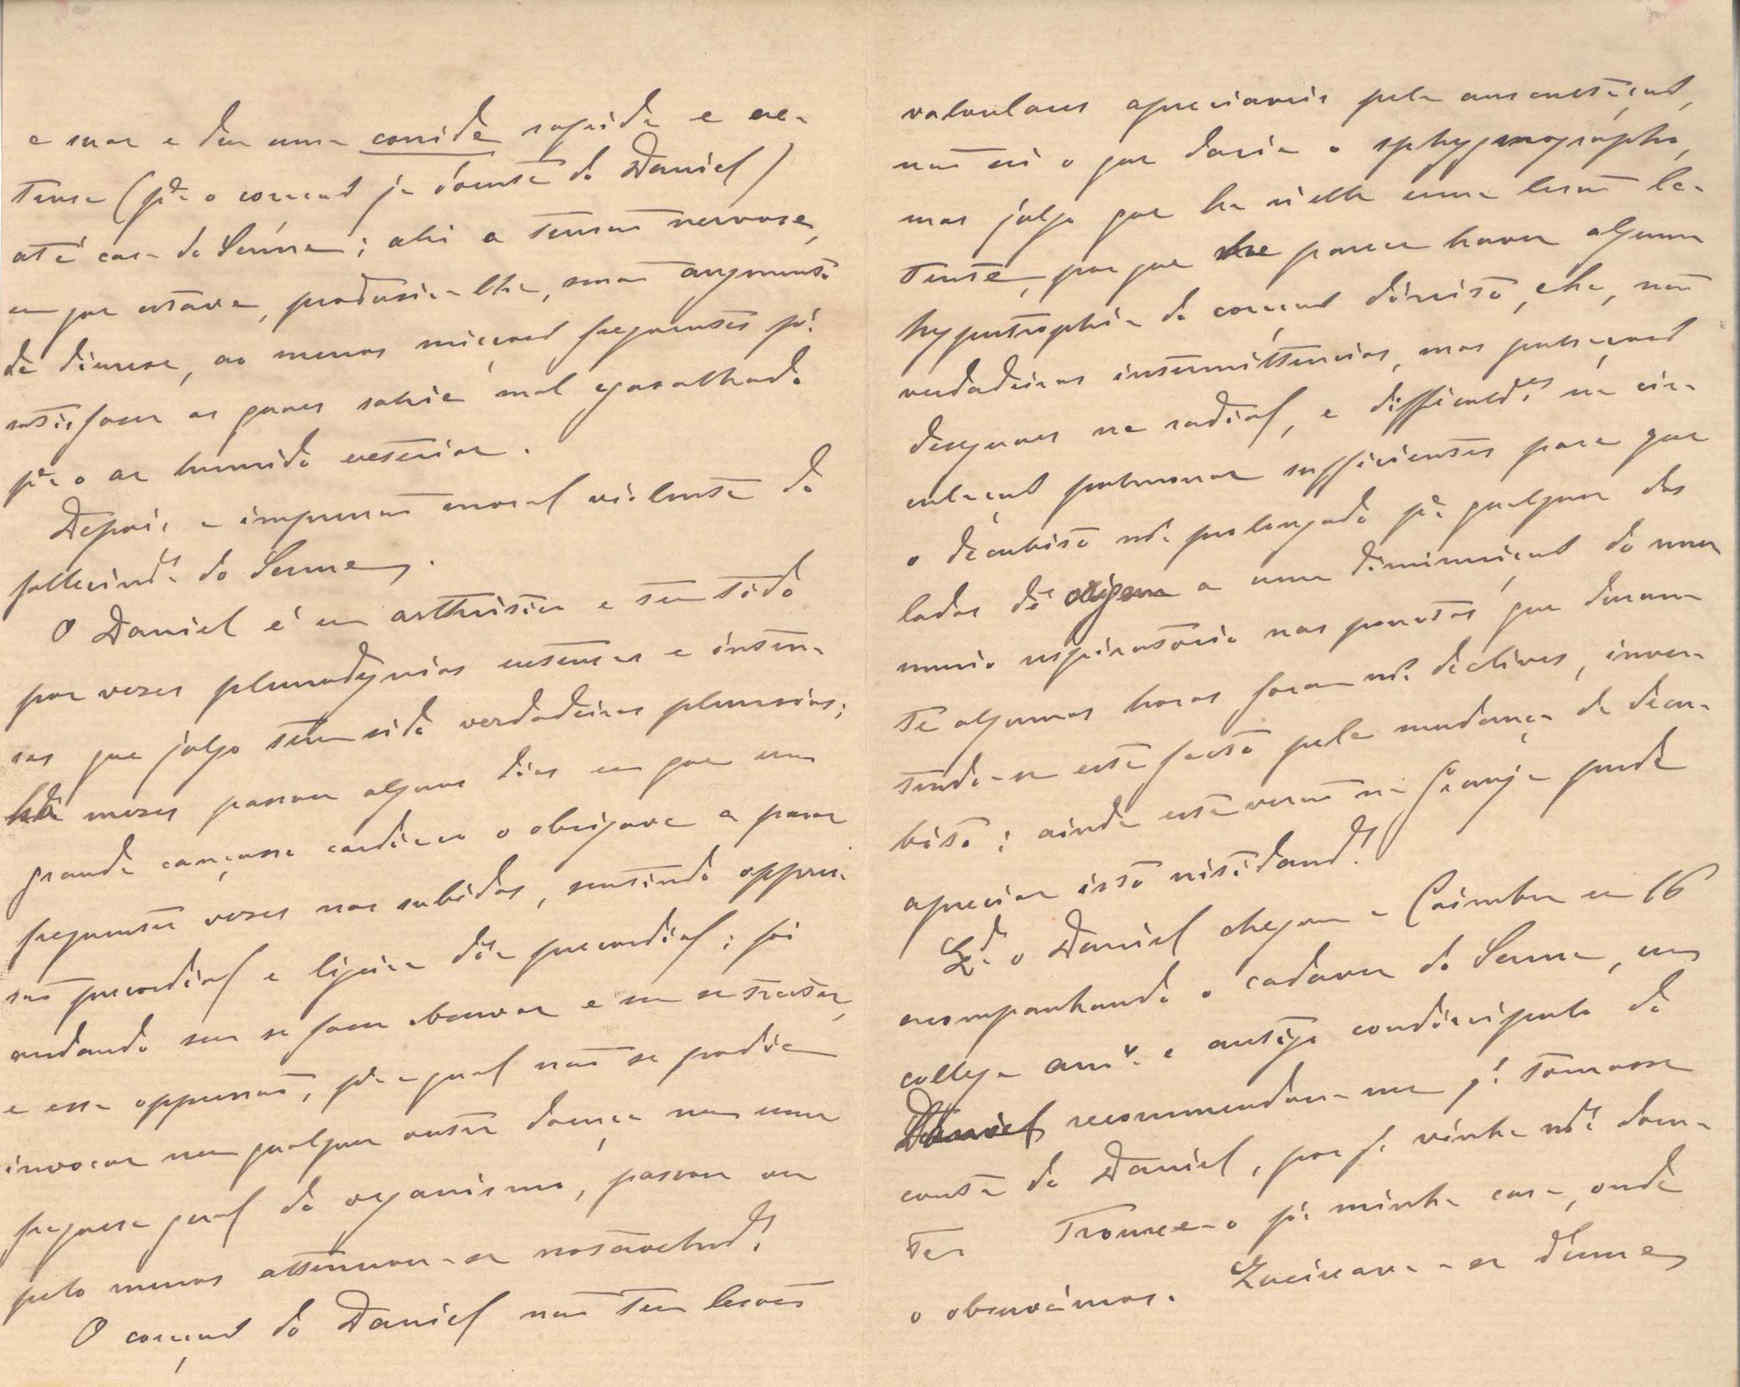 a suar e deu uma corrida rapida e ex-
tensa (pª o coração já doente do Daniel)
até casa do Senna; ahi a tensão nervosa,
em que estava, produzia-lhe, senão augmento
de diurese, ao menos micções frequentes pª
satisfazer as quaes sahia mal agasalhado
pª o ar humido exterior.
Depois a impressão moral violenta do
fallecimtº do Senna.
O Daniel é um arthritico e tem tido
por vezes pleurodynias extensas e inten-
sas que julgo terem sido verdadeiras pleurisias;
ha mezes passou alguns dias em que um
grande cançasso cardiaco o obrigava a parar
frequentes vezes nas subidas, sentindo oppres-
são precordial e ligeira dôr precordial; foi
andando sem se fazer observar e sem se tratar,
e essa oppressão, pª a qual não se podia
invocar nem qualquer outra doença nem uma
fraqueza geral do organismo, passou ou
pelo menos attenuou-se notavelmtº
O coração do Daniel não tem lesões
valvulares apreciaveis pela auscultação,
não sei o que daria o sphygmographo,
mas julgo que ha n'elle uma lesão la-
tente, porque me parece haver alguma
hypertrophia do coração direito, e ha, não
verdadeiras intermittencias, mas pulsações
desiguaes na radial, e difficuldes na cir-
culação pulmonar sufficientes para que
o decubito mtº prolongado pª qualquer dos
lados dê origem a uma diminuição do mur
murio respiratorio nos pontos que duran-
te algumas horas foram mtº declives, inver-
tendo-se este facto pela mudança de decu-
bito; ainda este verão na Granja pude
apreciar isto nitidamtº
Qdº o Daniel chegou a Coimbra em 16
acompanhando o cadaver do Senna, um
collega amº e antigo condiscipulo do
Daniel recommendou-me pª tomasse
conta do Daniel, por q. vinha mtº doen-
te. Trouxe-o pª minha casa, onde
o observámos. Queixava-se d'uma